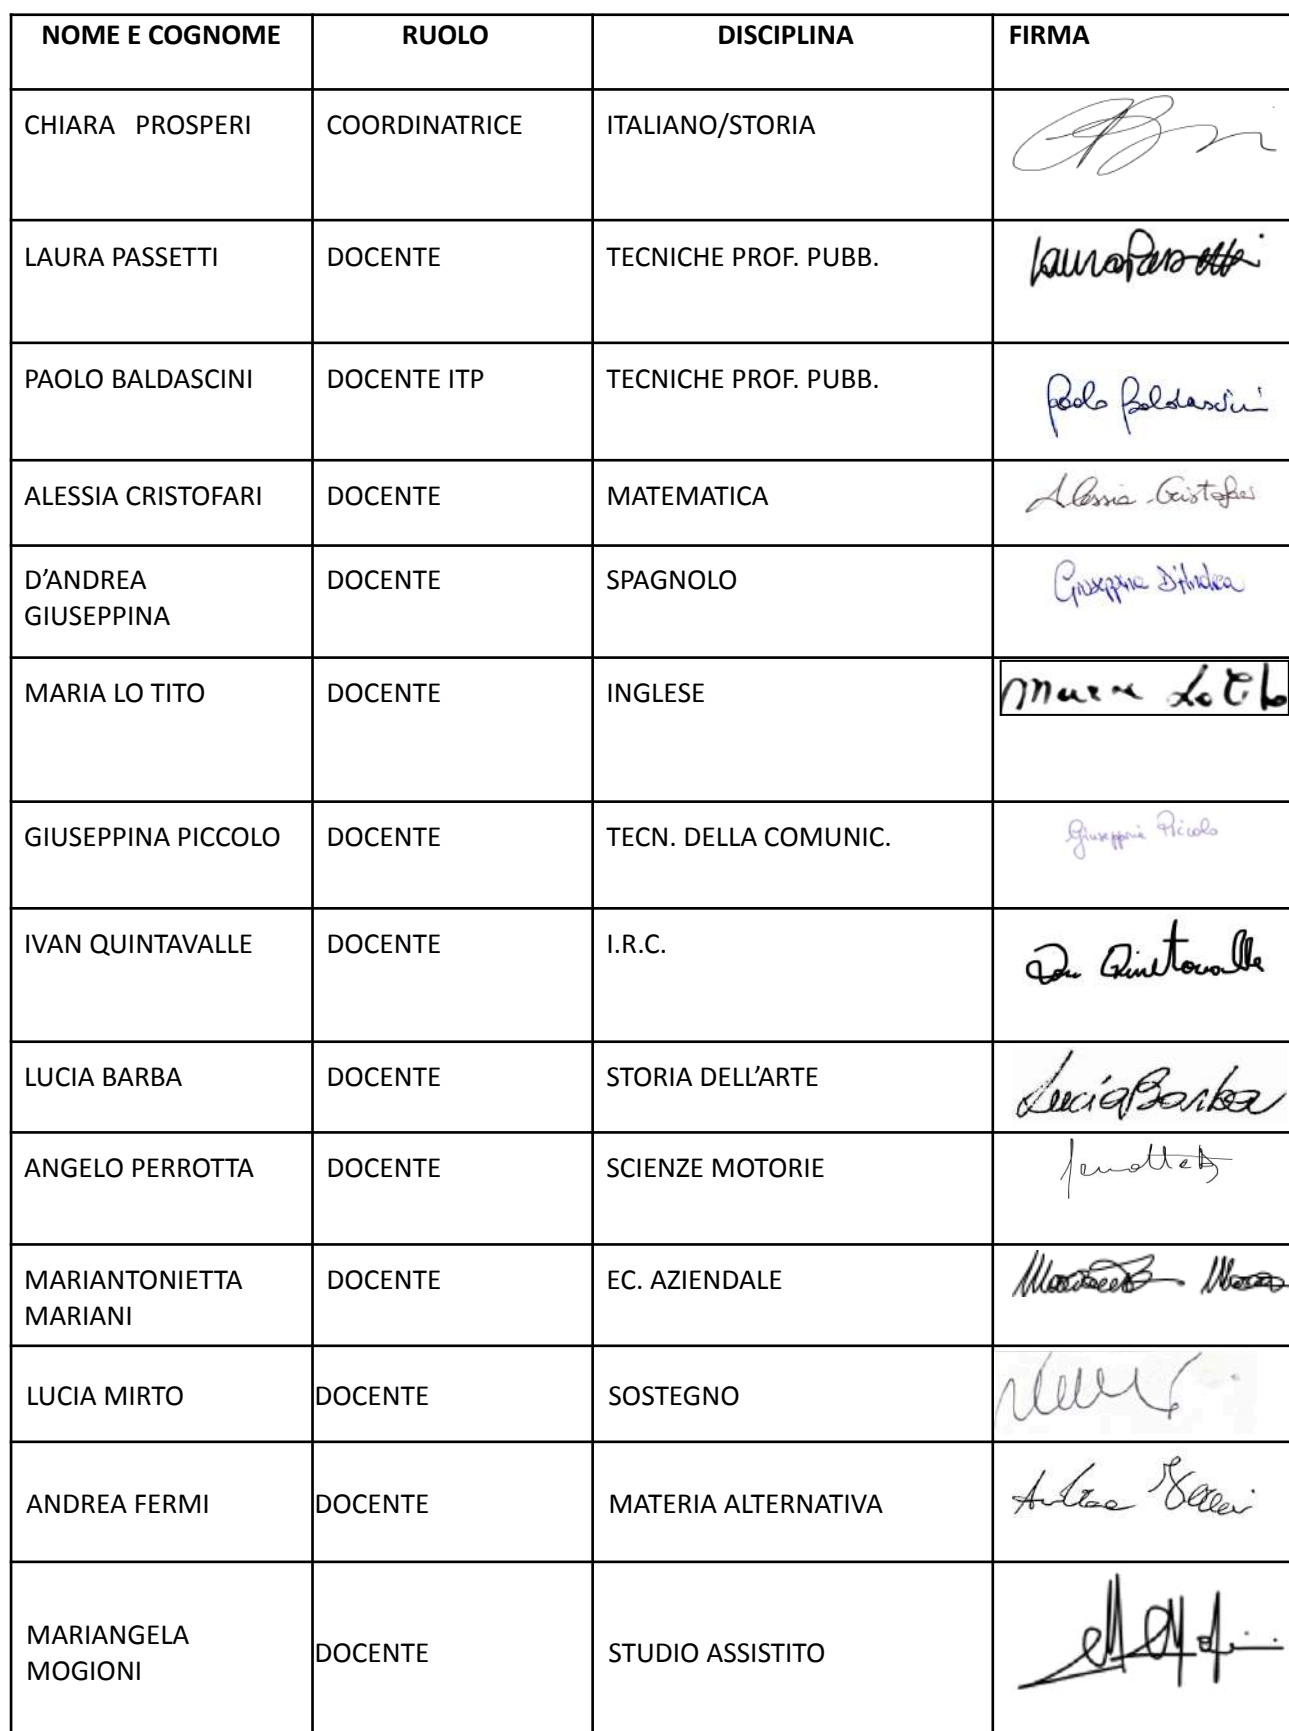 NOME E COGNOME RUOLO DISCIPLINA FIRMA
CHIARA PROSPERI COORDINATRICE ITALIANO/STORIA
LAURA PASSETTI DOCENTE TECNICHE PROF. PUBB. Laura Passetti
PAOLO BALDASCINI DOCENTE ITP TECNICHE PROF. PUBB. Paolo Baldascini
ALESSIA CRISTOFARI DOCENTE MATEMATICA Alessia Cristofari
D’ANDREA DOCENTE SPAGNOLO Giuseppina D'Andrea
GIUSEPPINA
MARIA LO TITO DOCENTE INGLESE Maria Lo Tito
GIUSEPPINA PICCOLO DOCENTE TECN. DELLA COMUNIC. Giuseppina Piccolo
IVAN QUINTAVALLE DOCENTE I.R.C. Quintavalle
LUCIA BARBA DOCENTE STORIA DELL’ARTE Lucia Barba
ANGELO PERROTTA DOCENTE SCIENZE MOTORIE
MARIANTONIETTA DOCENTE EC. AZIENDALE
MARIANI
LUCIA MIRTO DOCENTE SOSTEGNO
ANDREA FERMI DOCENTE MATERIA ALTERNATIVA Andrea Fermi
MARIANGELA DOCENTE STUDIO ASSISTITO
MOGIONI